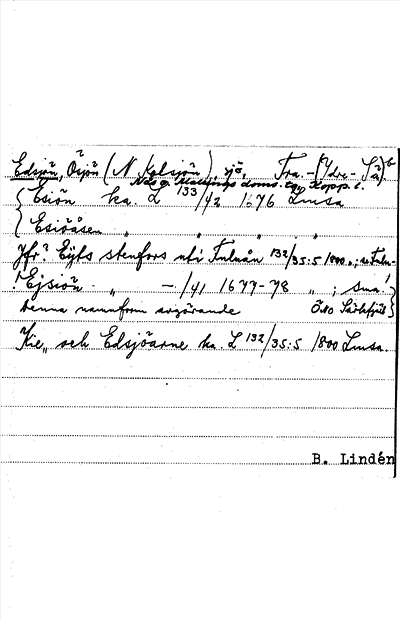 Edsjön, Ösjön (N. Kolsjön), sjö, Tra.-(Ydre- Så)
Nås o. Malungs doms. Kopp. l.
{ Esiön ka. L 133/42 1676 Lmsa
{ Esiöåsen " " " "
Jfr? Eyls stenfors uti Fuluån 132/35:5 1800.
! Ejsiön " - /41 1677-78 " ; sna.
Denna namnform avgörande Ö.no Särkfjäll}
Kie„ och Edsjöarne ka. L 132/35:5 1800 Lmsa.
B. Lindén